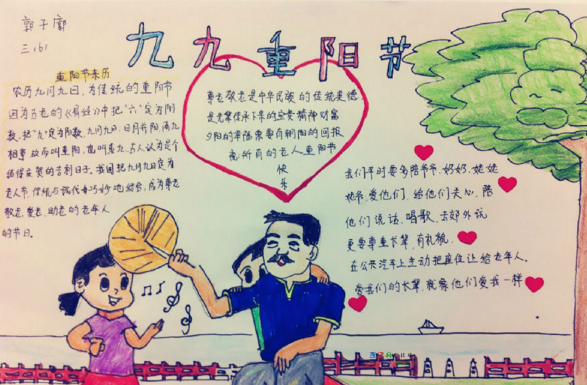 郭子廓
三(6)
九九重阳节
重阳节来历
农历九月九日,为传统的重阳节
因为古老的《易经》中把“六”定为阴
数,把“九”定为阳数,九月九日,日月并阳,两九
相重,故而叫重阳,也叫重九,古人认为是个
值得庆贺的吉利日子。我国把九月九日定为
老人节,传统与现代巧妙地结合,成为尊老
敬老、爱老、助老的老年人
的节日。
尊老敬老是中华民族的传统美德
是先辈传承下来的宝贵精神财富
夕阳的幸福需要有朝阳的回报
祝所有的老人重阳节
快
乐
我们平时要多陪爷爷、奶奶、姥姥
姥爷,爱他们,给他们关心,陪
他们说话、唱歌、去郊外玩
更要尊重长辈,有礼貌,
在公共汽车上主动把座位让给老年人。
爱我们的长辈,就像他们爱我一样